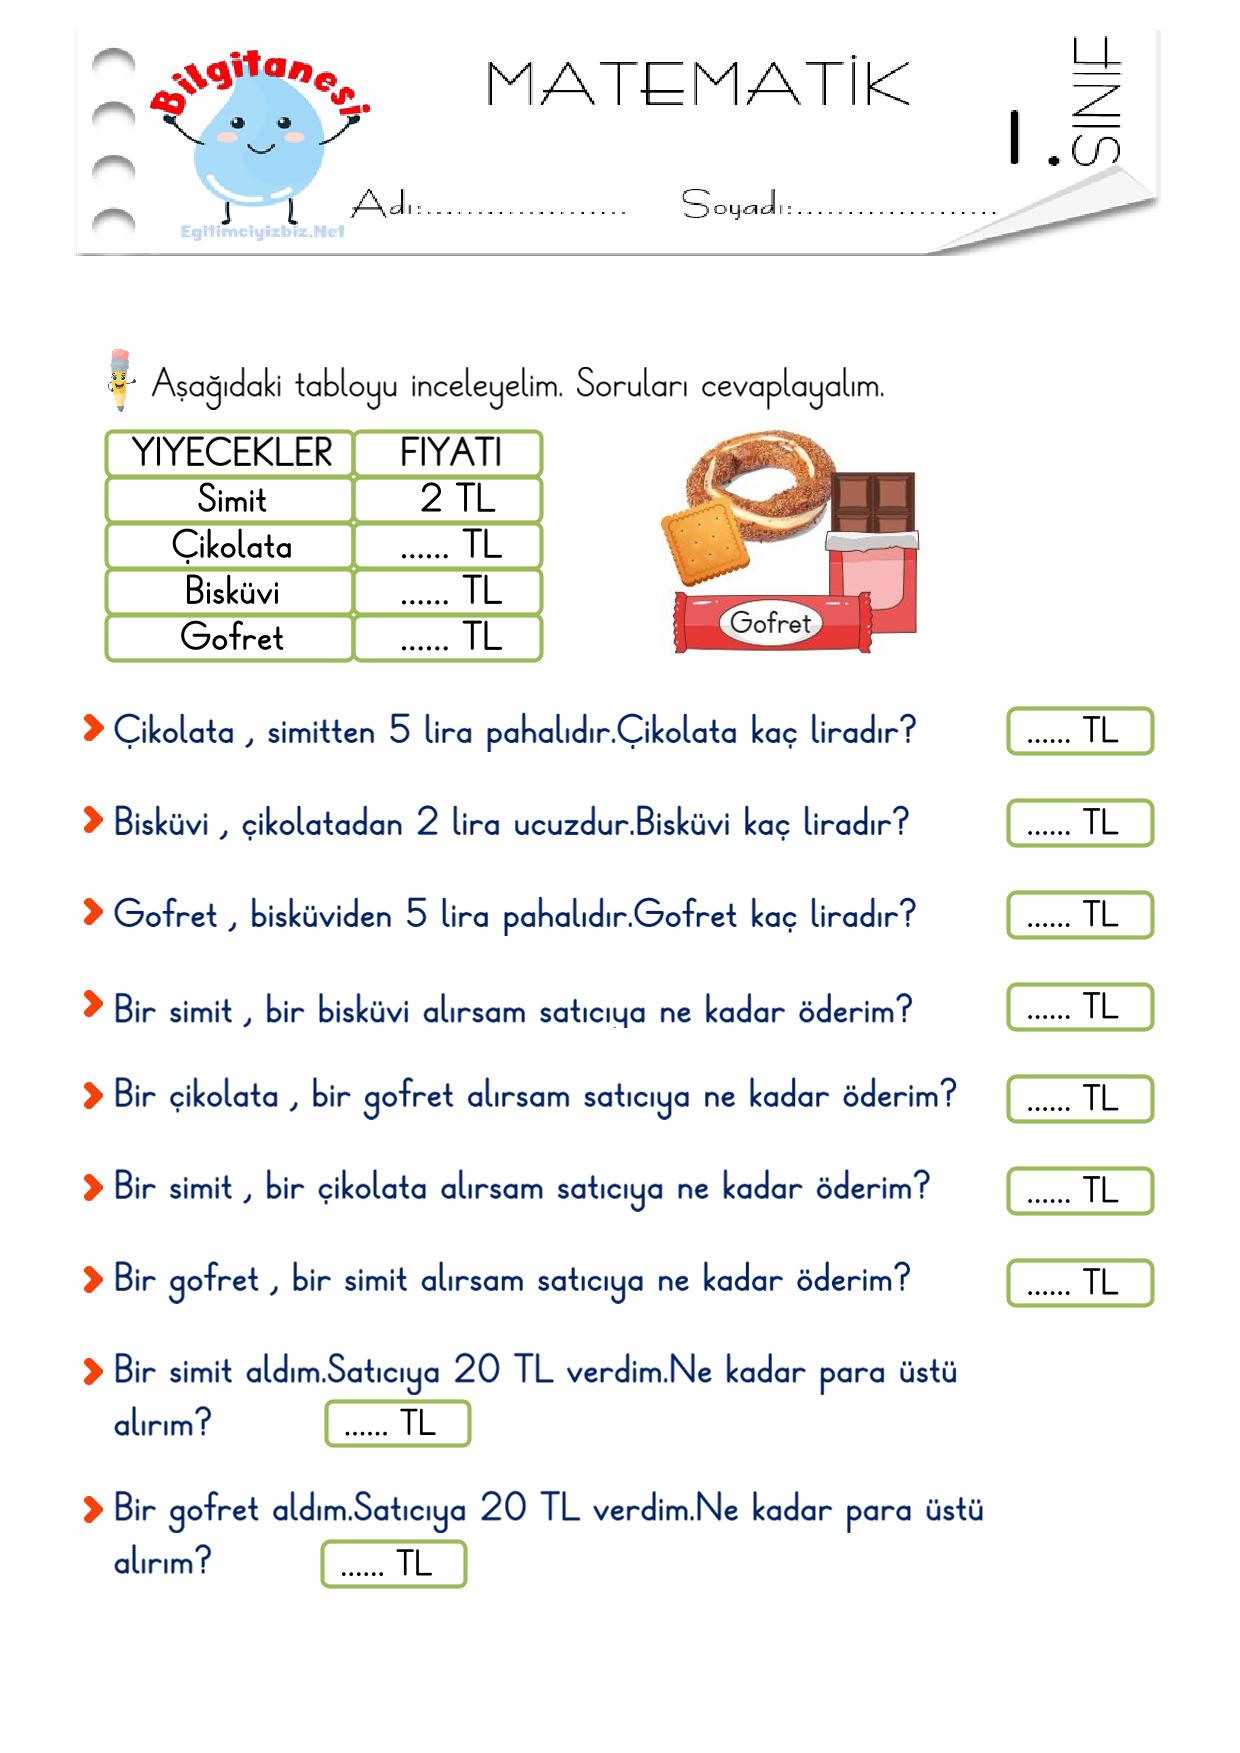 Bilgitanesi
MATEMATİK
1.SINIF
Adı:....................
Soyadı:....................
Egitimciyizbiz.Net
Aşağıdaki tabloyu inceleyelim. Soruları cevaplayalım.
YIYECEKLER FIYATI
Simit 2 TL
Çikolata ...... TL
Bisküvi ...... TL
Gofret ...... TL
Gofret
Çikolata , simitten 5 lira pahalıdır.Çikolata kaç liradır? ...... TL
Bisküvi , çikolatadan 2 lira ucuzdur.Bisküvi kaç liradır? ...... TL
Gofret , bisküviden 5 lira pahalıdır.Gofret kaç liradır? ...... TL
Bir simit , bir bisküvi alırsam satıcıya ne kadar öderim? ...... TL
Bir çikolata , bir gofret alırsam satıcıya ne kadar öderim? ...... TL
Bir simit , bir çikolata alırsam satıcıya ne kadar öderim? ...... TL
Bir gofret , bir simit alırsam satıcıya ne kadar öderim? ...... TL
Bir simit aldım.Satıcıya 20 TL verdim.Ne kadar para üstü
alırım? ...... TL
Bir gofret aldım.Satıcıya 20 TL verdim.Ne kadar para üstü
alırım? ...... TL